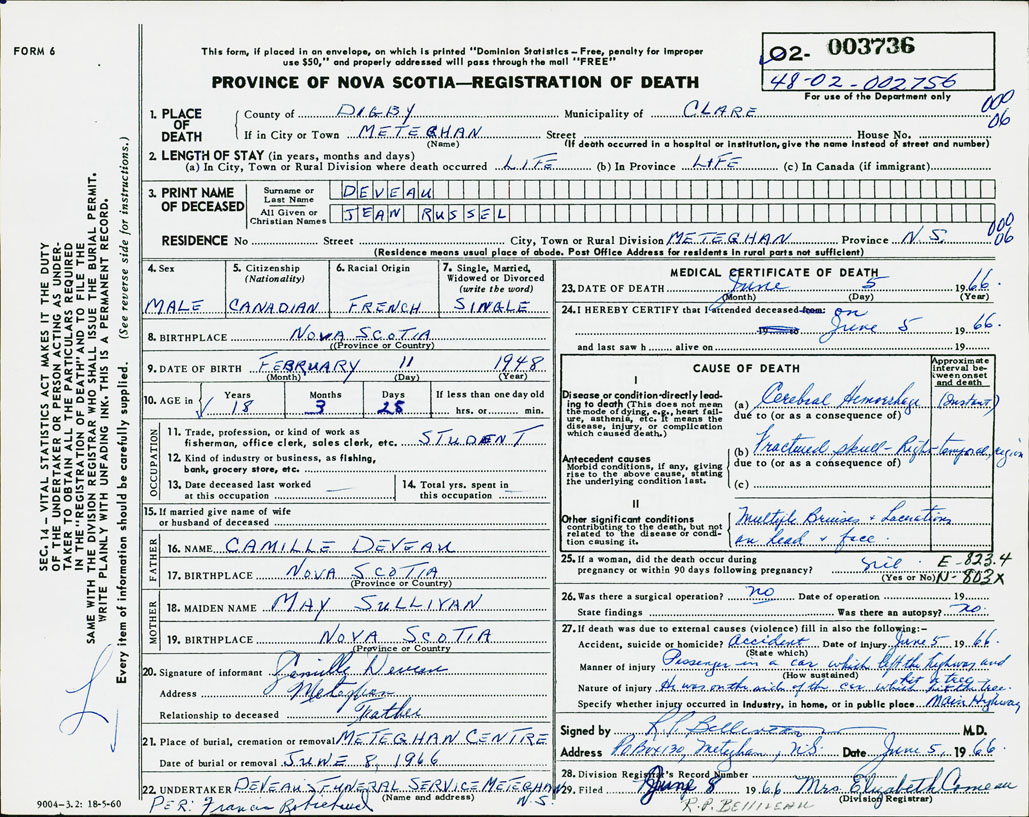 FORM 6
This form, if placed in an envelope, on which is printed "Dominion Statistics – Free, penalty for improper
use $50," and properly addressed will pass through the mail "FREE"
PROVINCE OF NOVA SCOTIA—REGISTRATION OF DEATH
02- 003736
48-02-002756
For use of the Department only
1. PLACE OF DEATH
County of DIGBY Municipality of CLARE 000
If in City or Town METEGHAN Street House No. 06
(Name) (If death occurred in a hospital or institution, give the name instead of street and number)
2. LENGTH OF STAY (in years, months and days)
(a) In City, Town or Rural Division where death occurred LIFE (b) In Province LIFE (c) In Canada (if immigrant)
3. PRINT NAME OF DECEASED
Surname or Last Name DEVEAU
All Given or Christian Names JEAN RUSSEL
000
RESIDENCE No Street City, Town or Rural Division METEGHAN Province N.S. 06
(Residence means usual place of abode. Post Office Address for residents in rural parts not sufficient)
SEC. 14 – VITAL STATISTICS ACT MAKES IT THE DUTY
OF THE UNDERTAKER OR PERSON ACTING AS UNDER-
TAKER TO OBTAIN ALL THE PARTICULARS REQUIRED
IN THE "REGISTRATION OF DEATH" AND TO FILE THE
SAME WITH THE DIVISION REGISTRAR WHO SHALL ISSUE THE BURIAL PERMIT.
WRITE PLAINLY WITH UNFADING INK. THIS IS A PERMANENT RECORD.
Every item of information should be carefully supplied. (See reverse side for instructions.)
4. Sex
MALE
5. Citizenship
(Nationality)
CANADIAN
6. Racial Origin
FRENCH
7. Single, Married,
Widowed or Divorced
(write the word)
SINGLE
8. BIRTHPLACE NOVA SCOTIA
(Province or Country)
9. DATE OF BIRTH FEBRUARY 11 1948
(Month) (Day) (Year)
10. AGE in Years Months Days If less than one day old
18 3 25 hrs. or min.
OCCUPATION
11. Trade, profession, or kind of work as
fisherman, office clerk, sales clerk, etc. STUDENT
12. Kind of industry or business, as fishing,
bank, grocery store, etc.
13. Date deceased last worked
at this occupation
14. Total yrs. spent in
this occupation
15. If married give name of wife
or husband of deceased
FATHER
16. NAME CAMILLE DEVEAU
17. BIRTHPLACE NOVA SCOTIA
(Province or Country)
MOTHER
18. MAIDEN NAME MAY SULLIVAN
19. BIRTHPLACE NOVA SCOTIA
(Province or Country)
20. Signature of informant Camille Deveau
Address Meteghan
Relationship to deceased Father
21. Place of burial, cremation or removal METEGHAN CENTRE
Date of burial or removal JUNE 8, 1966
22. UNDERTAKER DEVEAU'S FUNERAL SERVICE METEGHAN
(Name and address) N.S.
9004–3.2: 18-5-60 PER: Francis Robichaud
MEDICAL CERTIFICATE OF DEATH
23. DATE OF DEATH June 5 1966.
(Month) (Day) (Year)
24. I HEREBY CERTIFY that I attended deceased from: on
19 to June 5 1966.
and last saw h alive on 19
CAUSE OF DEATH
Approximate
interval be-
tween onset
and death
I
Disease or condition directly lead-
ing to death (This does not mean
the mode of dying, e.g., heart fail-
ure, asthenia, etc. It means the
disease, injury, or complication
which caused death.)
(a) Cerebral Hemorrhage (Instant)
due to (or as a consequence of)
Antecedent causes
Morbid conditions, if any, giving
rise to the above cause, stating
the underlying condition last.
(b) Fractured skull - Right temporal region
due to (or as a consequence of)
(c)
II
Other significant conditions
contributing to the death, but not
related to the disease or condi-
tion causing it.
Multiple Bruises + Lacerations
on head + face.
25. If a woman, did the death occur during
pregnancy or within 90 days following pregnancy? nil.
(Yes or No)
E-823.4
N-803X
26. Was there a surgical operation? no Date of operation 19
State findings Was there an autopsy? no.
27. If death was due to external causes (violence) fill in also the following:–
Accident, suicide or homicide? Accident Date of injury June 5 1966.
(State which)
Manner of injury Passenger in a car which left the highway and
(How sustained) hit a tree
Nature of injury He was on the side of the car which hit the tree.
Specify whether injury occurred in Industry, in home, or in public place Main Highway
Signed by R.P. Belliveau M.D.
Address PO Box 130, Meteghan, N.S. Date June 5, 1966.
28. Division Registrar's Record Number
29. Filed June 8 1966 Mrs Elizabeth Comeau
(Division Registrar)
R.P. BELLIVEAU